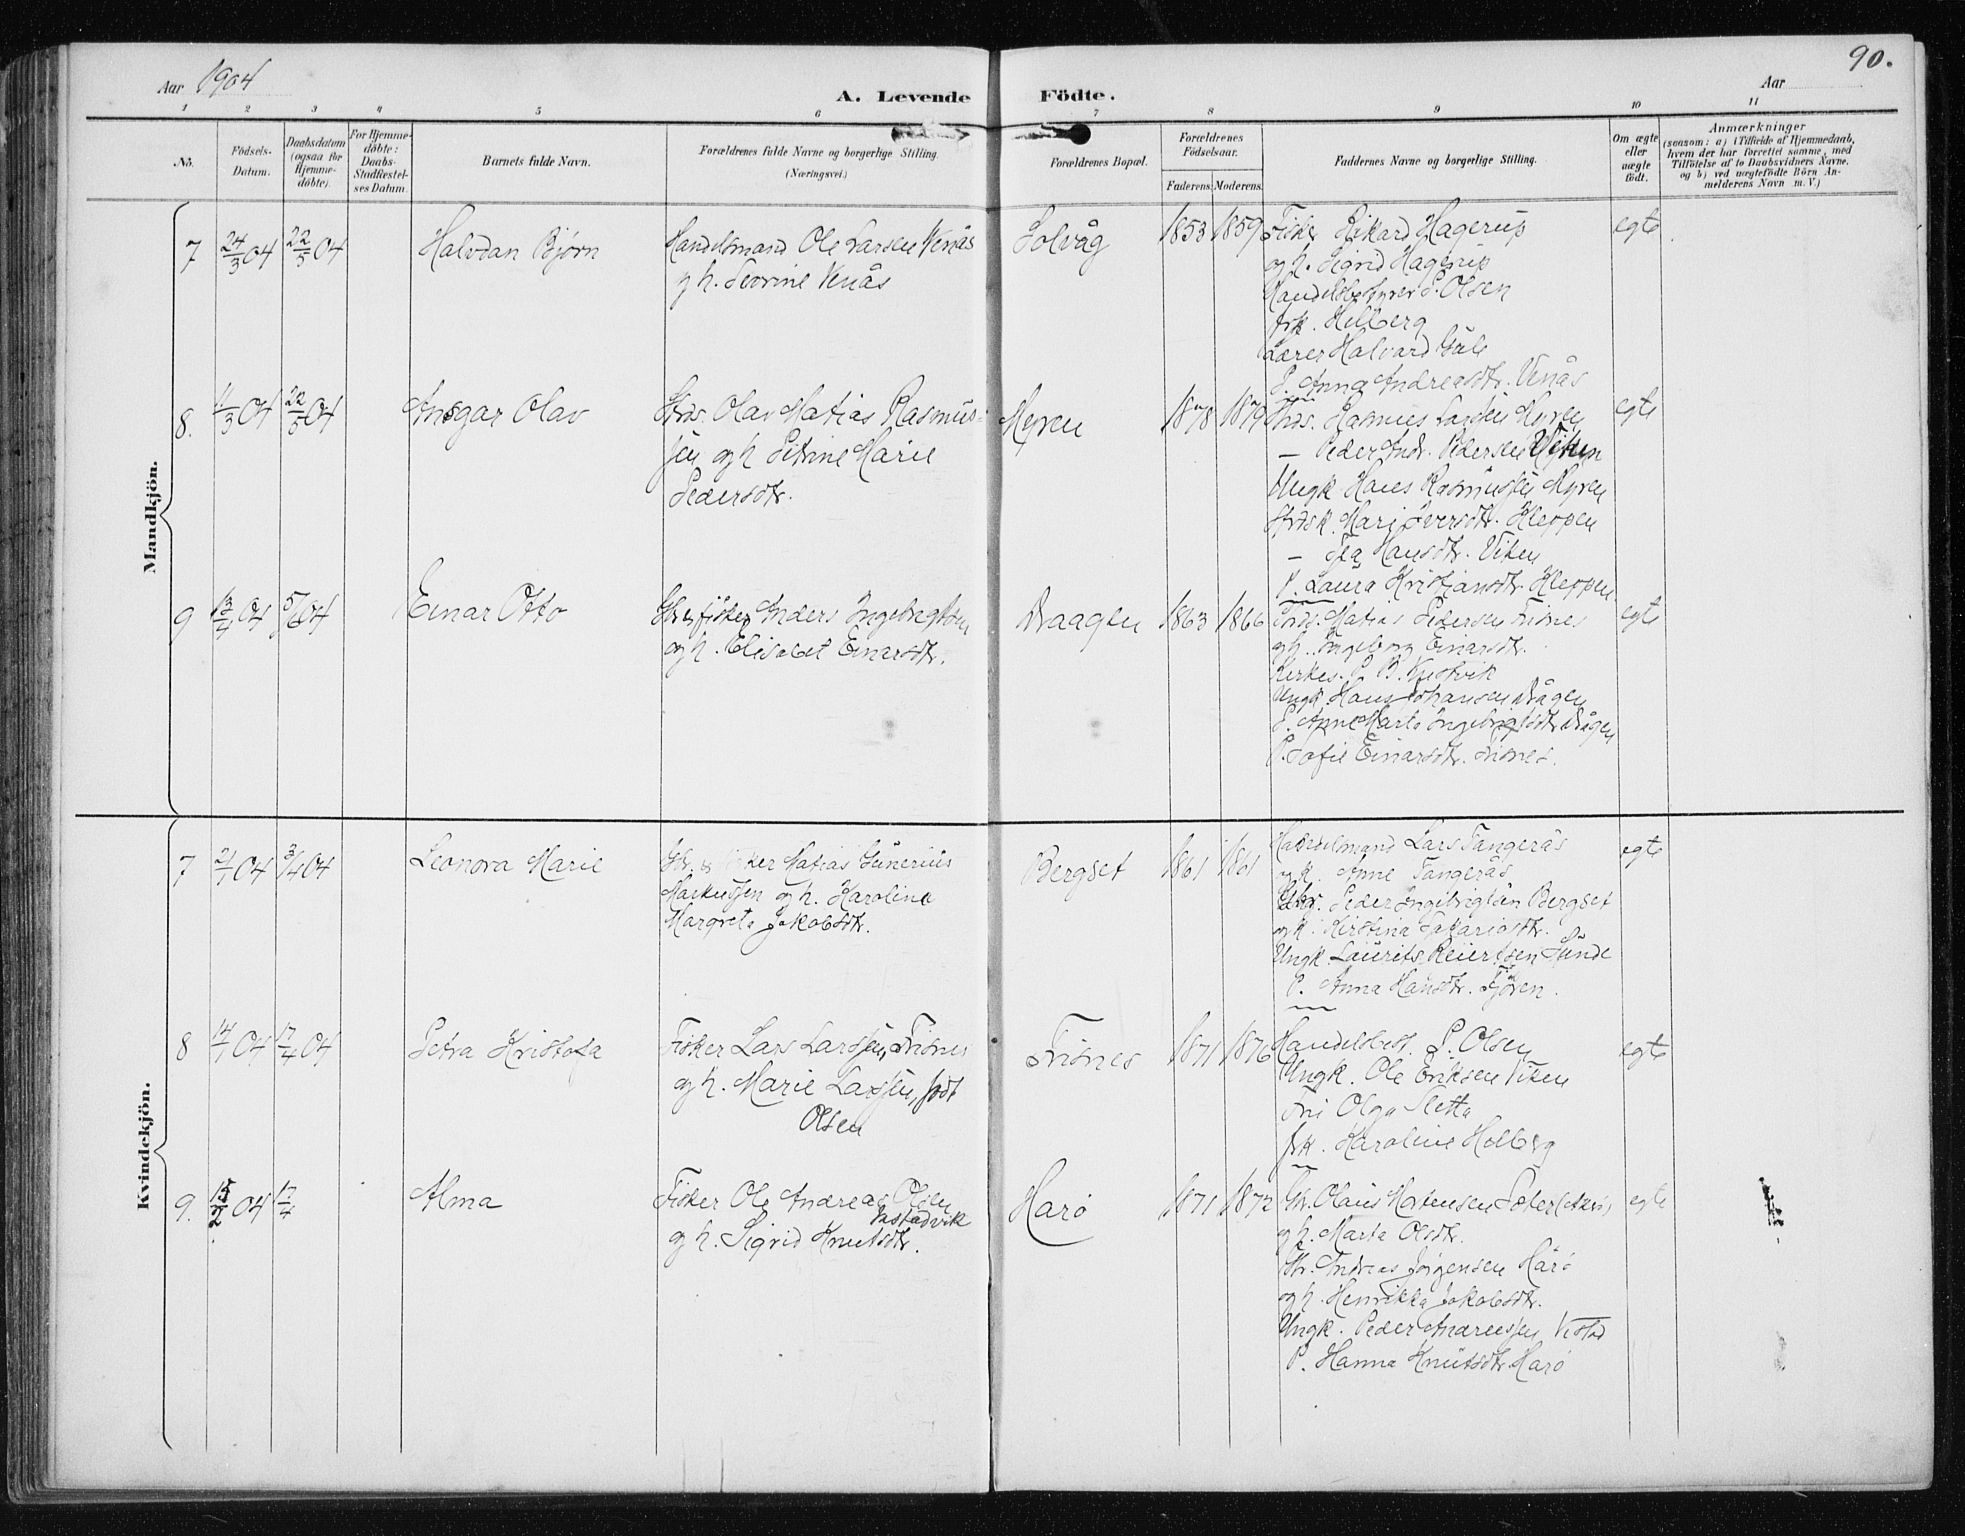 90.
Aar 1904
A. Levende Födte.
Aar
1 2 3 4 5 6 7 8 9 10 11
Nö.
Födsels-Datum.
Daabsdatum (ogsaa for Hjemme-döbte).
For Hjemme-döbte: Daabs-Stadfæstel-ses Datum.
Barnets fulde Navn.
Forældrenes fulde Navne og borgerlige Stilling. (Næringsvei.)
Forældrenes Bopæl.
Forældrenes Födselsaar.
Faderens. Moderens.
Faddernes Navne og borgerlige Stilling.
Om ægte eller uægte födt.
Anmærkninger
(saasom: a) i Tilfælde af Hjemmedaab,
hvem der har forrettet samme, med
Tilföielse af to Daabsvidners Navne,
og b) ved uægtefödte Börn An-
melderens Navn m. V.)
Mandkjön.
7 24/3 04 22/5 04 Halvdan Bjørn
Handelsmand Ole Larsen Venås
og h. Severine Venås
Solvåg 1853 1859
Fisker Rikard Hagerup
og h. Sigrid Hagerup
Handelsbestyrer P. Olsen
frk. Holberg
Lærer Halvard
P. Anna Andreasdtr. Venås
egte
8. 11/3 04 22/5 04 Ansgar Olav
Grds. Olav Matias Rasmus-
sen og h Petrine Marie
Pedersdtr.
Myren 1878 1879
Grds. Rasmus Larssen Myren
— Peder Andr. Pedersen Viken
Ungk Hans Rasmussen Myren
Mari Iversdtr. Kleppen
— Hansdtr. Viken
P. Laura Kristiansdtr. Kleppen
egte
9 13/4 04 5/6 04 Einar Otto
Gbr. & fisker Anders Ingebrigtsen
og h. Elisabet Einarsdtr.
Draagen 1863 1866
Matias Pedersen Frisnes
og h. Ingeborg Einarsdtr.
Kirkes. P. B.
Ungk. Hans Johansen Drågen
P. Anne Marta Ingebrigtsdtr. Drågen
P. Sofie Einarsdtr. Frisnes.
egte
Kvindekjön.
7 2/1 04 3/4 04 Leonora Marie
Gbr. & fisker Matias Gunerius
Markussen og h. Karoline
Margreta Jakobsdtr.
Bergset 1861 1861
Handelsmand Lars Tangerås
og h. Anne Tangerås
Gbr. Peder Ingebrigtsen Bergset
og h. Kirstina Sakariasdtr.
Ungk. Laurits Reiertsen Sunde
P. Anna Hansdtr. Fjøren.
egte
8 14/1 04 17/4 04 Petra Kristofa
Fisker Lars Larssen, Frisnes
og h. Marie Larssen, født
Olsen
Frisnes 1871 1876
Handelsbest. P. Olsen
Ungk. Ole Eriksen Viken
Fru Olga Sletta
frk. Karoline Holberg
egte
9. 15/2 04 17/4 Alma
Fisker Ole Andreas Olsen
og h. Sigrid Knutsdtr.
Harø 1871 1872
Gbr. Olaus Mortensen Sæter
og h. Marta Olsdtr.
Gbr. Andreas Jørgensen Harø
og h. Henrikka Jakobsdtr.
Ungk. Peder Andreassen
P. Hanna Knutsdtr. Harø
egte